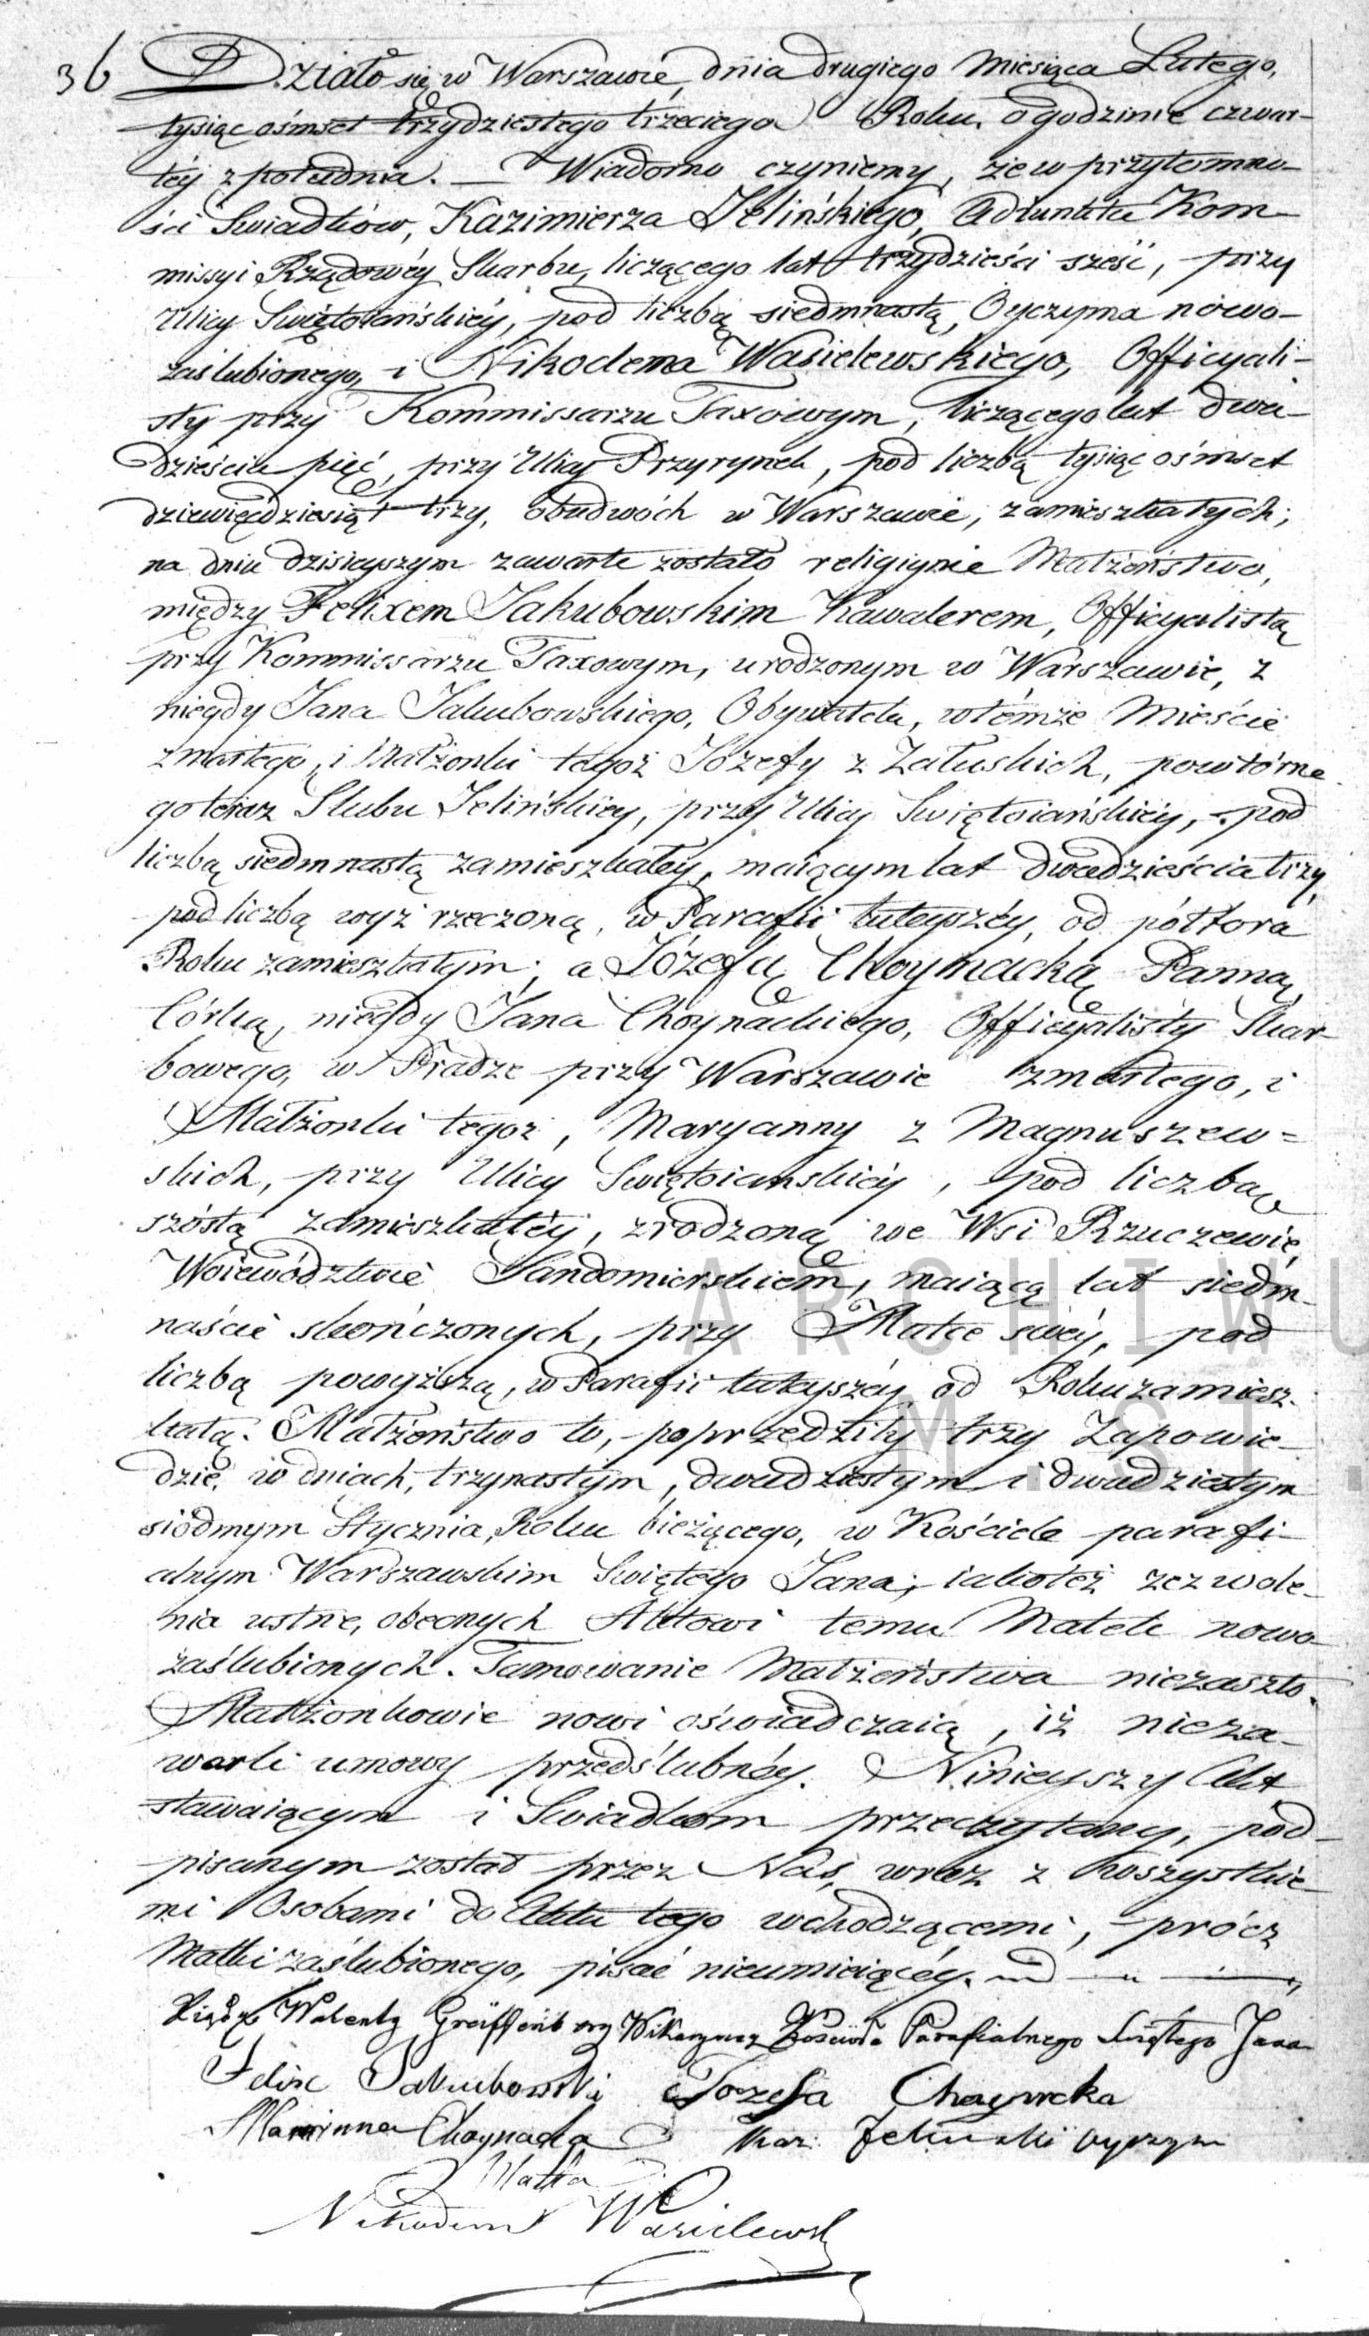 36 Działo się w Warszawie, dnia drugiego Miesiąca Lutego,
tysiąc ośmset trzydziestego trzeciego Roku, o godzinie czwar-
téy z południa. — Wiadomo czyniemy, że w przytomno-
ści Swiadków, Kazimierza Jelińskiego, Adiunkta Kom-
missyi Rządowéy Skarbu, liczącego lat trzydzieści sześć, przy
Ulicy Swiętoiańskiéy, pod liczbą siedmnastą, Oyczyma nowo-
zaślubionego, i Nikodema Wasielewskiego, Officyali-
sty przy Kommissarzu Taxowym, liczącego lat dwa-
dzieścia pięć, przy Ulicy Przyrynek, pod liczbą tysiąc ośmset
dziewięćdziesiąt trzy, obudwóch w Warszawie, zamieszkałych;
na dniu dzisieyszym zawarte zostało religiynie Małżeństwo,
między Felixem Jakubowskim Kawalerem, Officyalistą
przy Kommissarzu Taxowym, urodzonym w Warszawie, z
niegdy Jana Jakubowskiego, Obywatela, w témże Mieście
zmarłego, i Małżonki tegoż Józefy z Załuskich, powtórne
go teraz Slubu Jelińskiey, przy Ulicy Swiętoiańskiéy, pod
liczbą siedmnastą zamieszkałey, maiącym lat dwadzieścia trzy,
pod liczbą wyż rzeczoną, w Parafii tuteyszéy, od półtora
Roku zamieszkałym; a Józefą Choynacką Panną,
Córką, niegdy Jana Choynackiego, Officyalisty Skar-
bowego, w Pradze przy Warszawie zmarłego, i
Małżonki tegoż, Maryanny z Magnuszew-
skich, przy Ulicy Swiętoianskiéy, pod liczbą
szóstą zamieszkałéy, zrodzoną we Wsi Rzuczewie,
Woiewództwie Sandomierskiem, maiącą lat siedm-
naście skończonych, przy Matce swéy, pod
liczbą powyższą, w Parafii tuteyszéy od Roku zamiesz-
kałą. Małżeństwo to, poprzedziły trzy Zapowie-
dzie, w dniach, trzynastym, dwudziestym i dwudziestym
siódmym Stycznia, Roku bieżącego, w Kościele parafi-
alnym Warszawskim Swiętego Jana; iakoteż zezwole-
nia ustne, obecnych Aktowi temu Matek nowo
zaślubionych. Tamowanie Małżeństwa niezaszło.
Małżonkowie nowi oświadczaią, iż nieza-
warli umowy przedślubnéy. Ninieyszy Akt
stawaiącym i Swiadkom przeczytany, pod-
pisanym został przez Nas, wraz z wszystkie-
mi Osobami do Aktu tego wchodzącemi, prócz
Matki zaślubionego, pisać nieumieiącéy.
Xiądz Walenty Wikaryusz Kościoła Parafialnego Świętego Jana
Felix Jakubowski Jozefa Choynacka
Marianna Choynacka Kaz: Jeliński oyczym
Matka
Nikodem Wasilewski
ARCHIWU
M. ST.